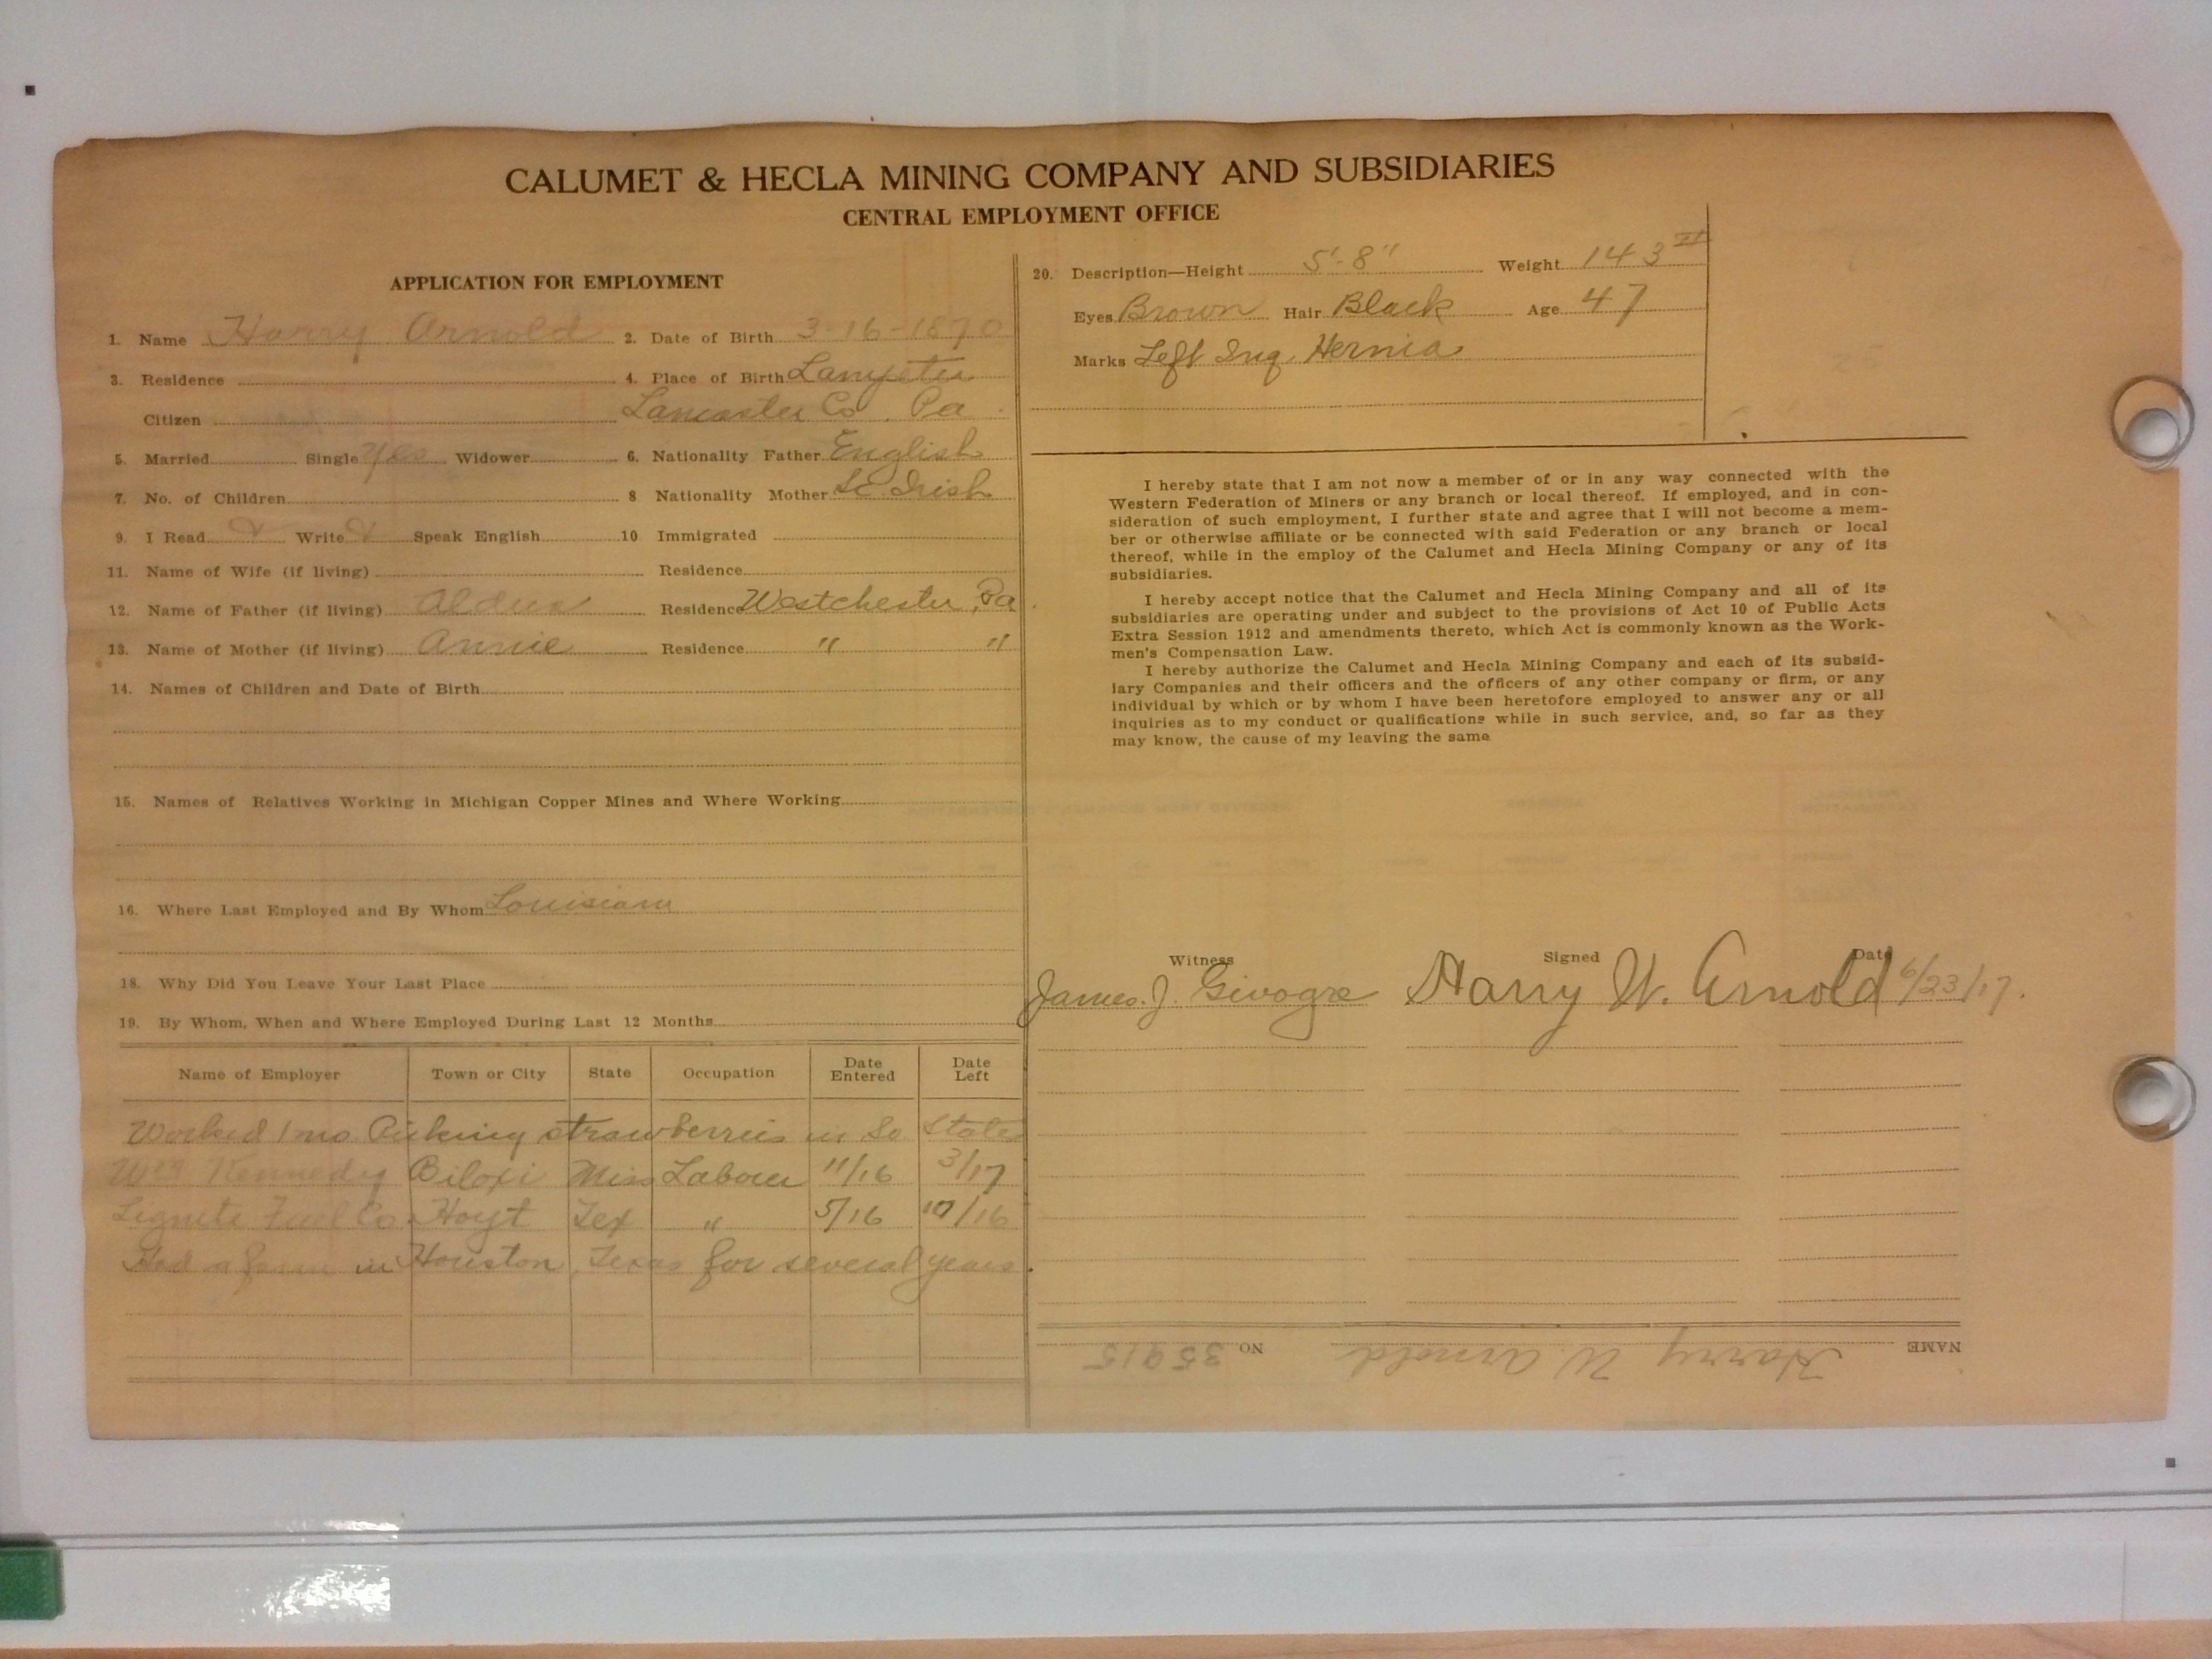 CALUMET & HECLA MINING COMPANY AND SUBSIDIARIES
CENTRAL EMPLOYMENT OFFICE
APPLICATION FOR EMPLOYMENT
1. Name Harry Arnold 2. Date of Birth 3-16-1870
3. Residence 4. Place of Birth Lampeter
Citizen Lancaster Co. Pa.
5. Married Single Yes Widower 6. Nationality Father English
7. No. of Children 8 Nationality Mother Sc Irish
9. I Read Write Speak English 10 Immigrated
11. Name of Wife (if living) Residence
12. Name of Father (if living) Aldus Residence Westchester, Pa
13. Name of Mother (if living) Annie Residence " "
14. Names of Children and Date of Birth
15. Names of Relatives Working in Michigan Copper Mines and Where Working
16. Where Last Employed and By Whom Louisiana
18. Why Did You Leave Your Last Place
19. By Whom, When and Where Employed During Last 12 Months
Name of Employer Town or City State Occupation Date Entered Date Left
Worked 1 mo. Picking strawberries in So States
Wm Kennedy Biloxi Miss Labour 11/16 3/17
Lignite Fuel Co. Hoyt Tex " 5/16 10/16
Had a farm in Houston, Texas for several years.
20. Description—Height 5'-8" Weight 143
Eyes Brown Hair Black Age 47
Marks Left Ing. Hernia
I hereby state that I am not now a member of or in any way connected with the
Western Federation of Miners or any branch or local thereof. If employed, and in con-
sideration of such employment, I further state and agree that I will not become a mem-
ber or otherwise affiliate or be connected with said Federation or any branch or local
thereof, while in the employ of the Calumet and Hecla Mining Company or any of its
subsidiaries.
I hereby accept notice that the Calumet and Hecla Mining Company and all of its
subsidiaries are operating under and subject to the provisions of Act 10 of Public Acts
Extra Session 1912 and amendments thereto, which Act is commonly known as the Work-
men's Compensation Law.
I hereby authorize the Calumet and Hecla Mining Company and each of its subsid-
iary Companies and their officers and the officers of any other company or firm, or any
individual by which or by whom I have been heretofore employed to answer any or all
inquiries as to my conduct or qualifications while in such service, and, so far as they
may know, the cause of my leaving the same
Witness Signed Date
James. J. Givogre Harry W. Arnold 6/23/17.
NAME Harry W. Arnold NO 35915